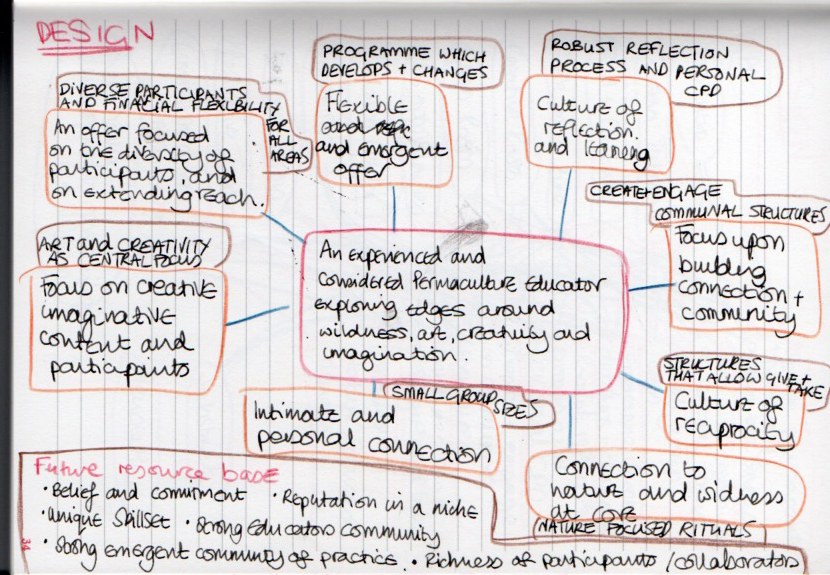 DESIGN
DIVERSE PARTICIPANTS
AND FINACIAL FLEXBILITY
FOR
ALL
AREAS
An offer focused
on the diversity of
participants, and
on extending reach.
PROGRAMME WHICH
DEVELOPS + CHANGES
Flexible
and
and emergent
offer
ROBUST REFLECTION
PROCESS AND PERSONAL
CPD
Culture of
reflection.
and learning
CREATE + ENGAGE
COMMUNAL STRUCTURES
Focus upon
building
connection +
community
ART and CREATIVITY
AS CENTRAL FOCUS
Focus on creative
imaginative
content and
participants
An experienced and
considered Permaculture Educator
exploring edges around
wildness, art, creativity and
imagination.
STRUCTURES
THAT ALLOW GIVE +
TAKE
Culture of
reciprocity
SMALL GROUP
SIZES
Intimate and
personal connection
Connection to
nature and wildness
at core
NATURE FOCUSED RITUALS
Future resource base
• Belief and commitment • Reputation in a niche
• Unique Skillset • Strong educators community
• Strong emergent community of practice. • Richness of participants / collaborators
34